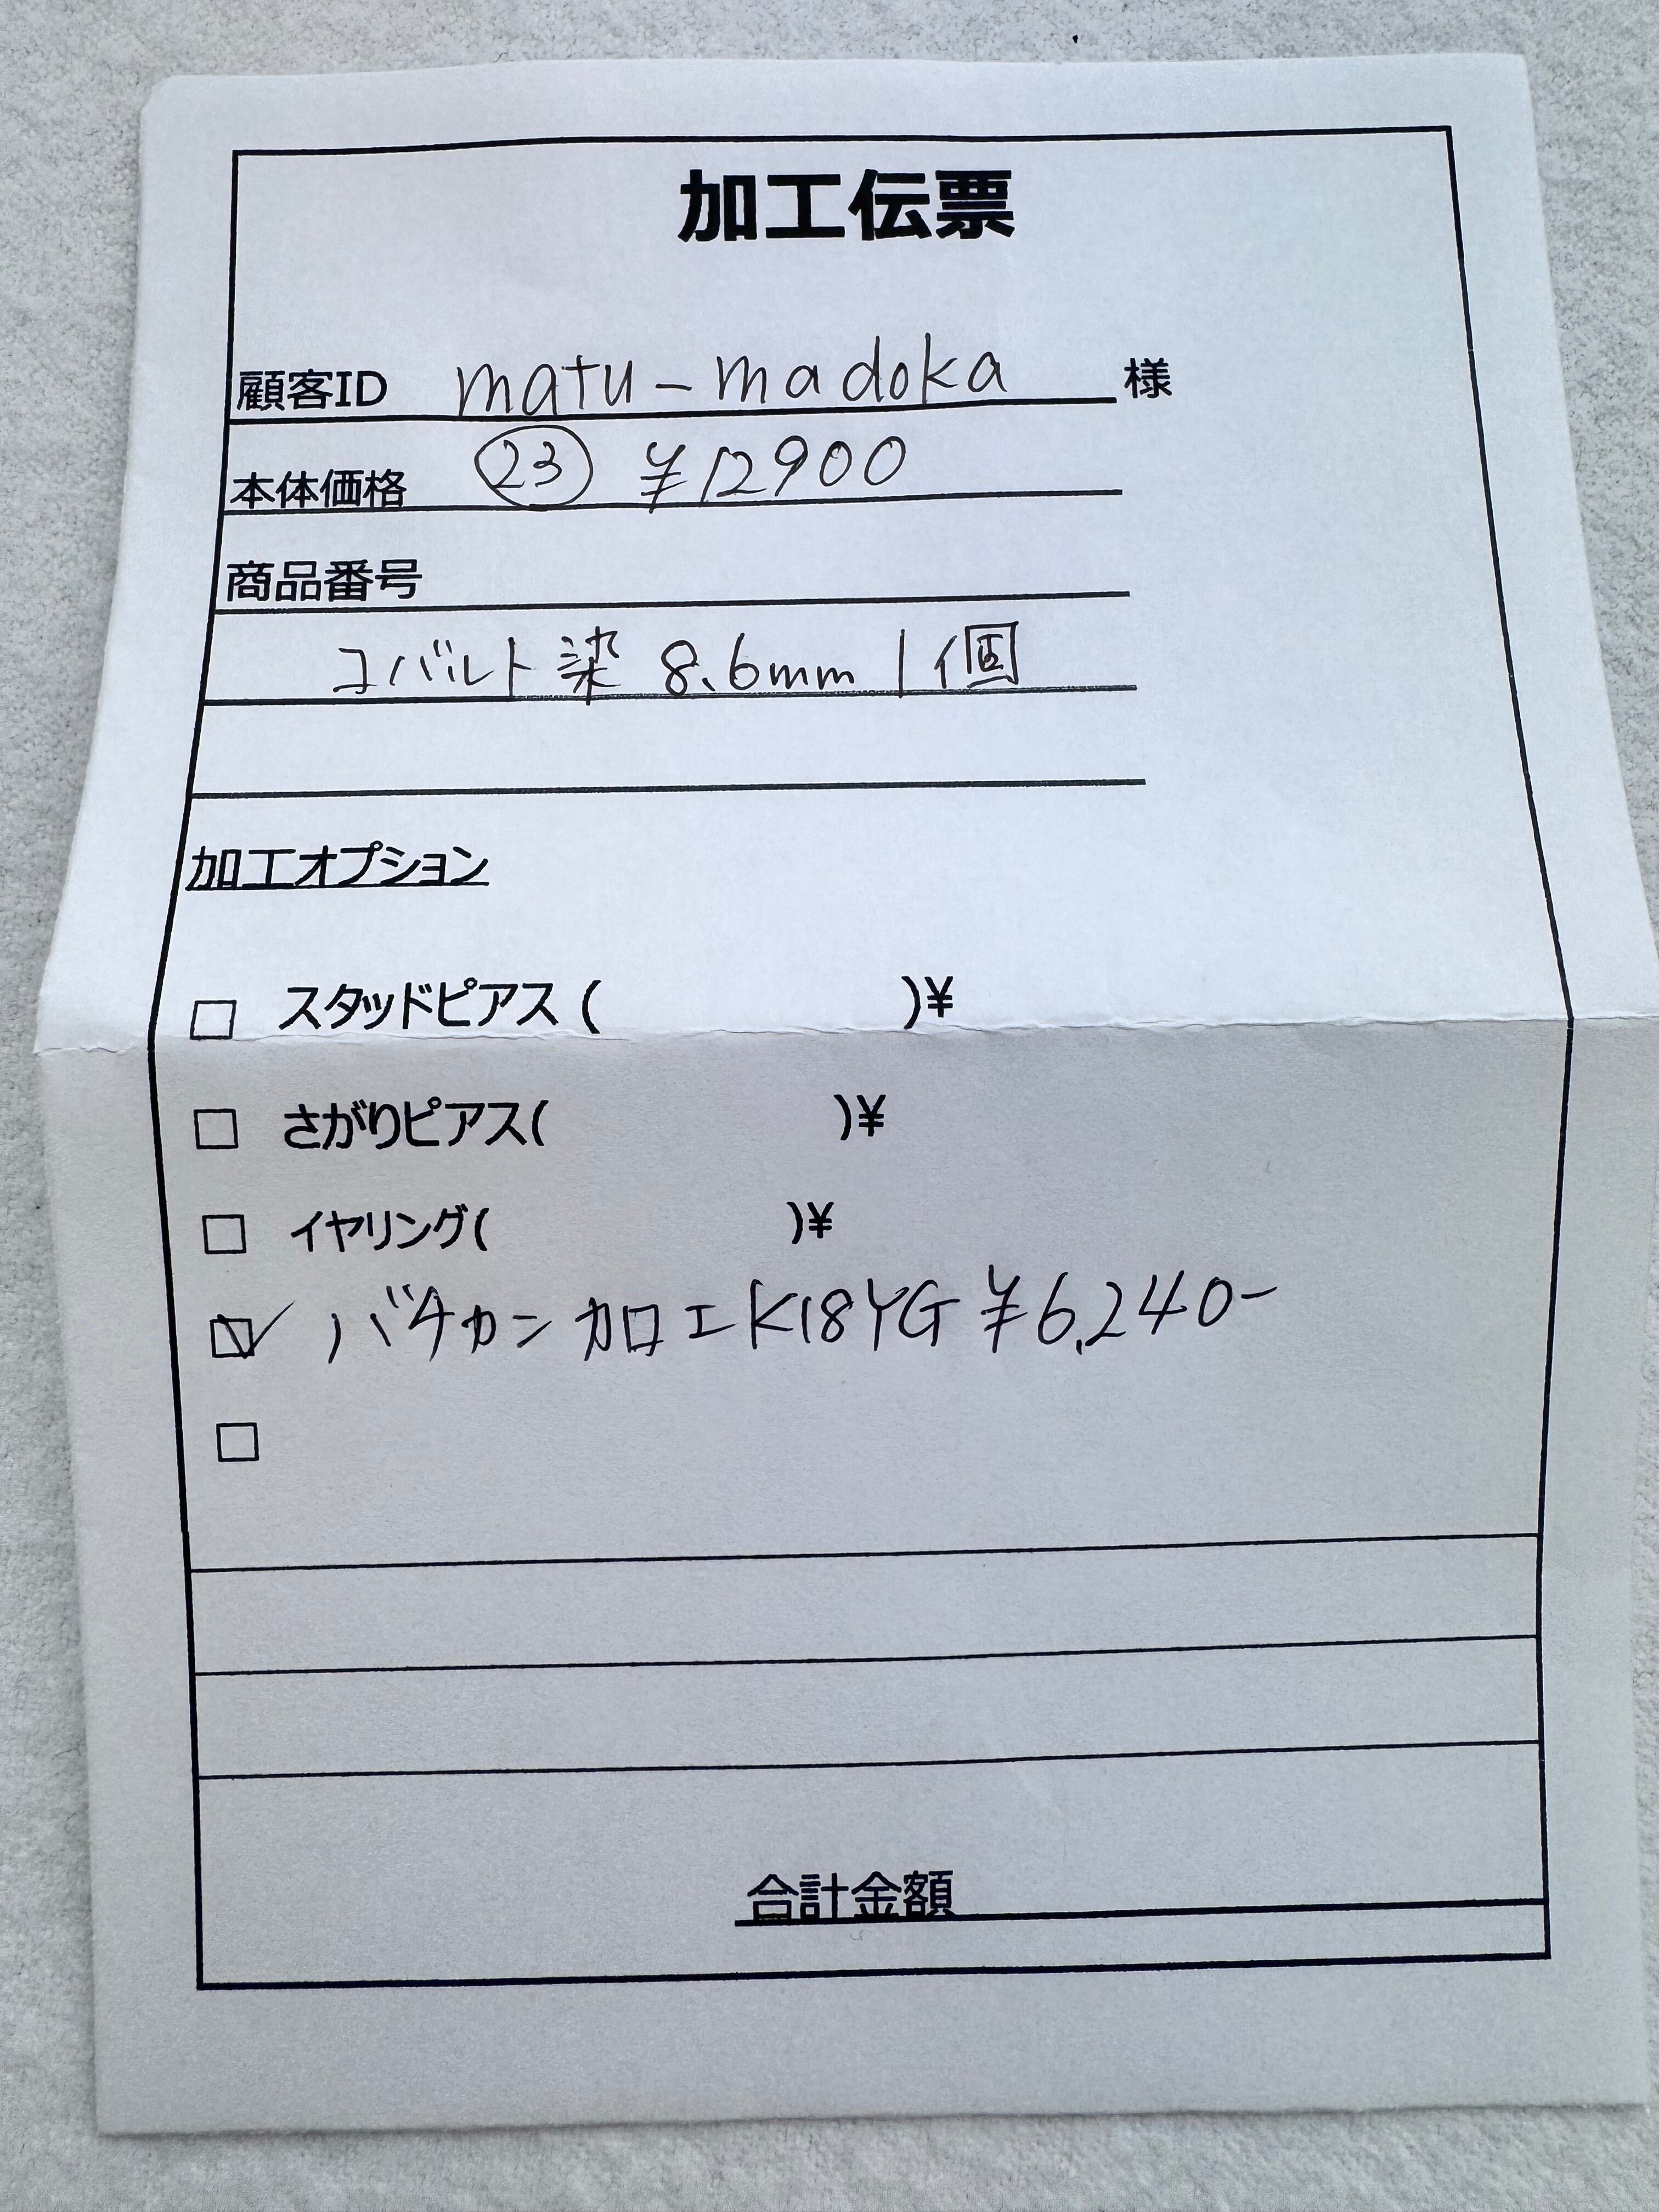 加工伝票
顧客ID matu-madoka 様
本体価格 ㉓ ¥12900
商品番号
コバルト染 8.6mm 1個
加工オプション
□ スタッドピアス ( )¥
□ さがりピアス( )¥
□ イヤリング( )¥
☑ バチカン加工K18YG ¥6,240-
□
合計金額